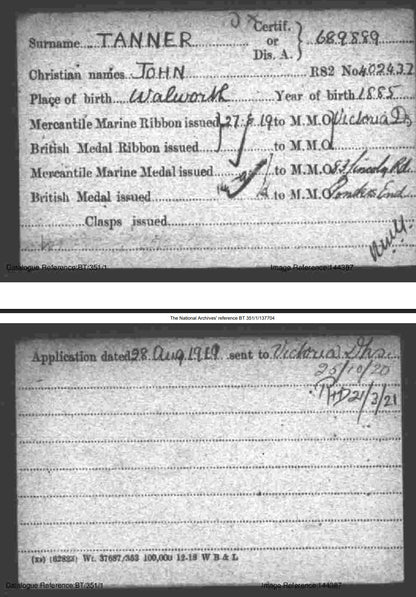 Surname TANNER Certif. or Dis. A. } 689889
Christian names JOHN RS2 No 402437
Place of birth Walworth Year of birth 1885
Mercantile Marine Ribbon issued 27.8.19 to M.M.O Victoria Ds
British Medal Ribbon issued to M.M.O
Mercantile Marine Medal issued to M.M.O 83 Lincoln Rd.
British Medal issued to M.M.O Ponders End
Clasps issued
Catalogue Reference:BT/351/1 Image Reference:144387
The National Archives' reference BT 351/1/137704
Application dated 28 Aug. 1919 sent to Victoria Dks.
25/10/20
21/3/21
(xv) (62823) Wt. 37687/353 100,000 12-18 W B & L
Catalogue Reference:BT/351/1 Image Reference:144387